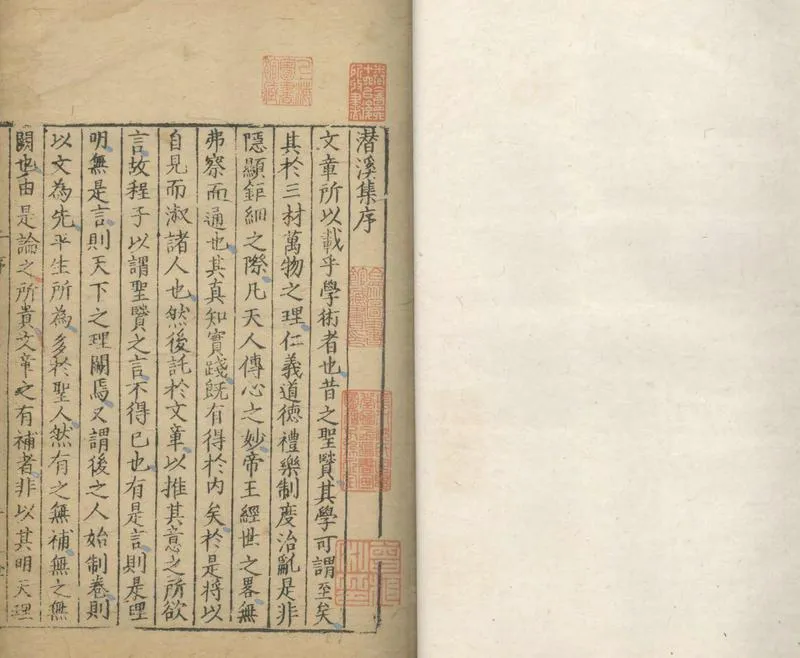 潛溪集序
文章所以載乎學術者也昔之聖賢其學可謂至矣
其於三材萬物之理仁義道德禮樂制度治亂是非
隱顯鉅細之際凡天人傳心之妙帝王經世之畧無
弗察而通也其真知實踐既有得於内矣於是將以
自見而淑諸人也然後託於文章以推其意之所欲
言故程子以謂聖賢之言不得已也有是言則是理
明無是言則天下之理闕焉又謂後之人始制卷則
以文為先平生所為多於聖人然有之無補無之無
闕也由是論之所貴文章之有補者非以其明天理